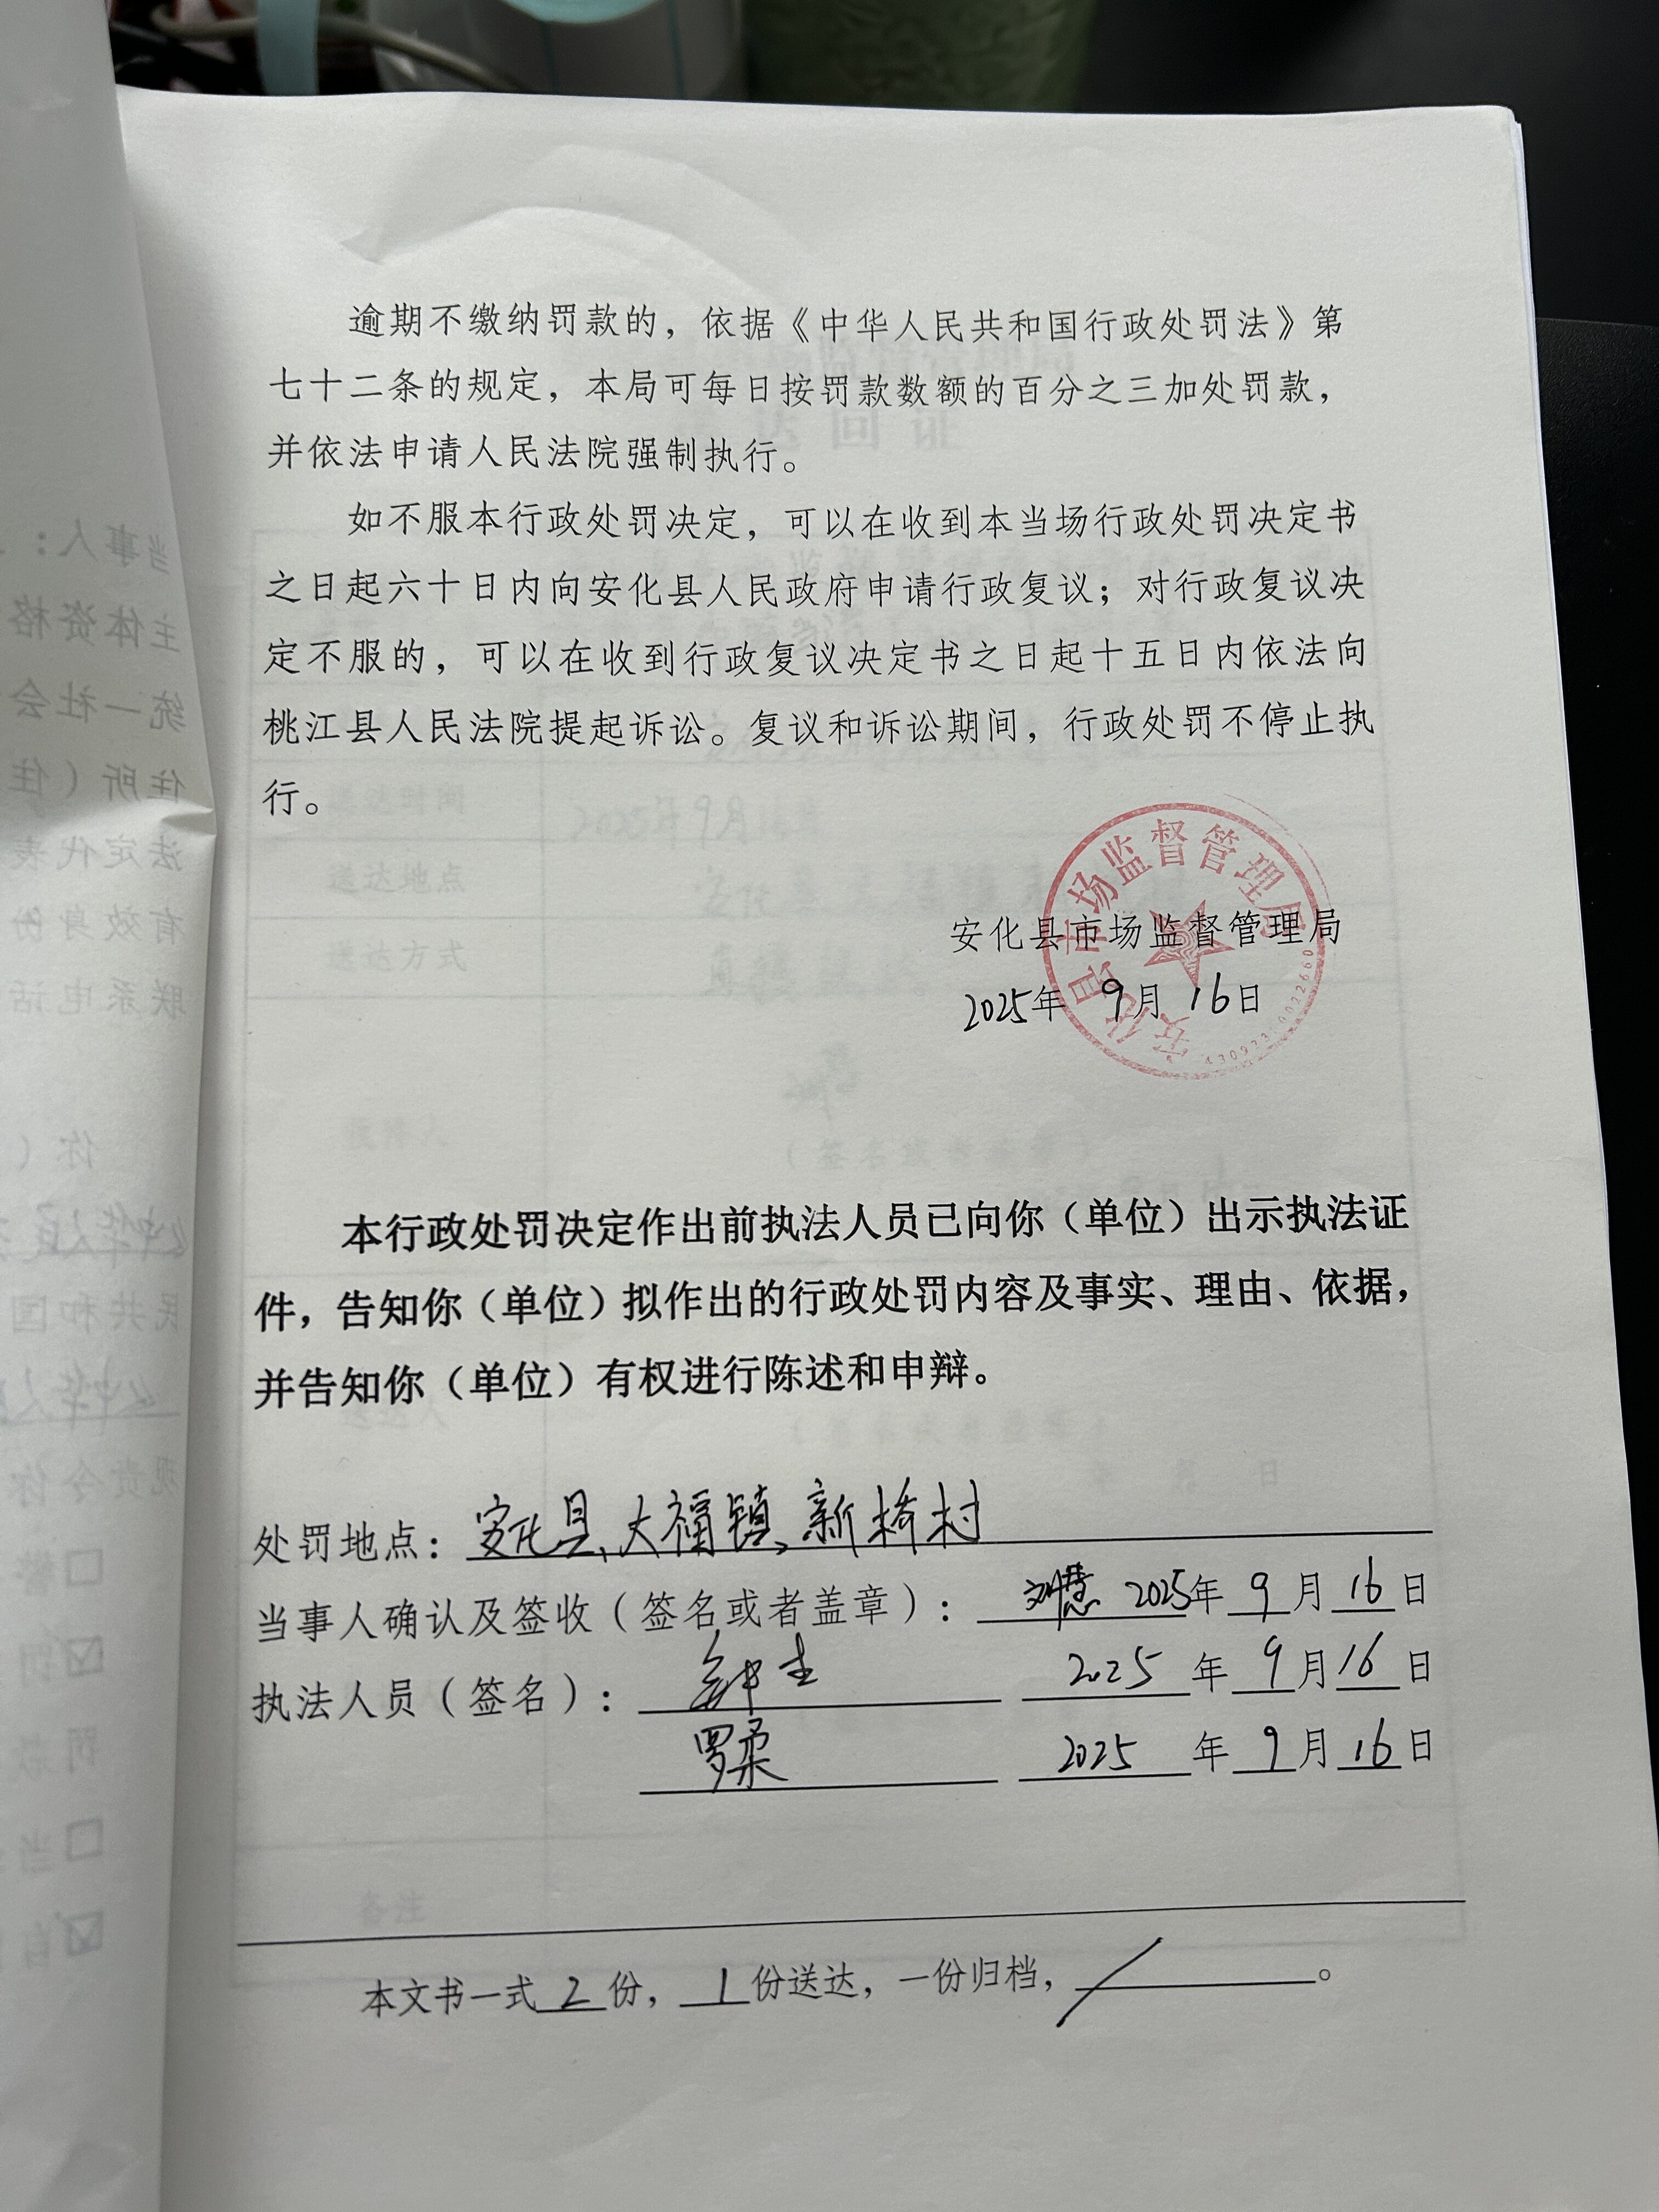 逾期不缴纳罚款的，依据《中华人民共和国行政处罚法》第
七十二条的规定，本局可每日按罚款数额的百分之三加处罚款，
并依法申请人民法院强制执行。
如不服本行政处罚决定，可以在收到本当场行政处罚决定书
之日起六十日内向安化县人民政府申请行政复议；对行政复议决
定不服的，可以在收到行政复议决定书之日起十五日内依法向
桃江县人民法院提起诉讼。复议和诉讼期间，行政处罚不停止执
行。
安化县市场监督管理局
安化县市场监督管理局
2025年 9月 16日
本行政处罚决定作出前执法人员已向你（单位）出示执法证
件，告知你（单位）拟作出的行政处罚内容及事实、理由、依据，
并告知你（单位）有权进行陈述和申辩。
处罚地点：安化县、大福镇、新桥村
当事人确认及签收（签名或者盖章）：刘慧 2025年 9 月 16 日
执法人员（签名）： 2025 年 9 月 16 日
罗柔 2025 年 9 月 16 日
本文书一式 2 份， 1 份送达，一份归档， / 。
当事人：
主体资格
统一社会
住所（住
法定代表
有效身份
联系电话
你（
《中华人民共
民共和国
《中华人民
现责令你